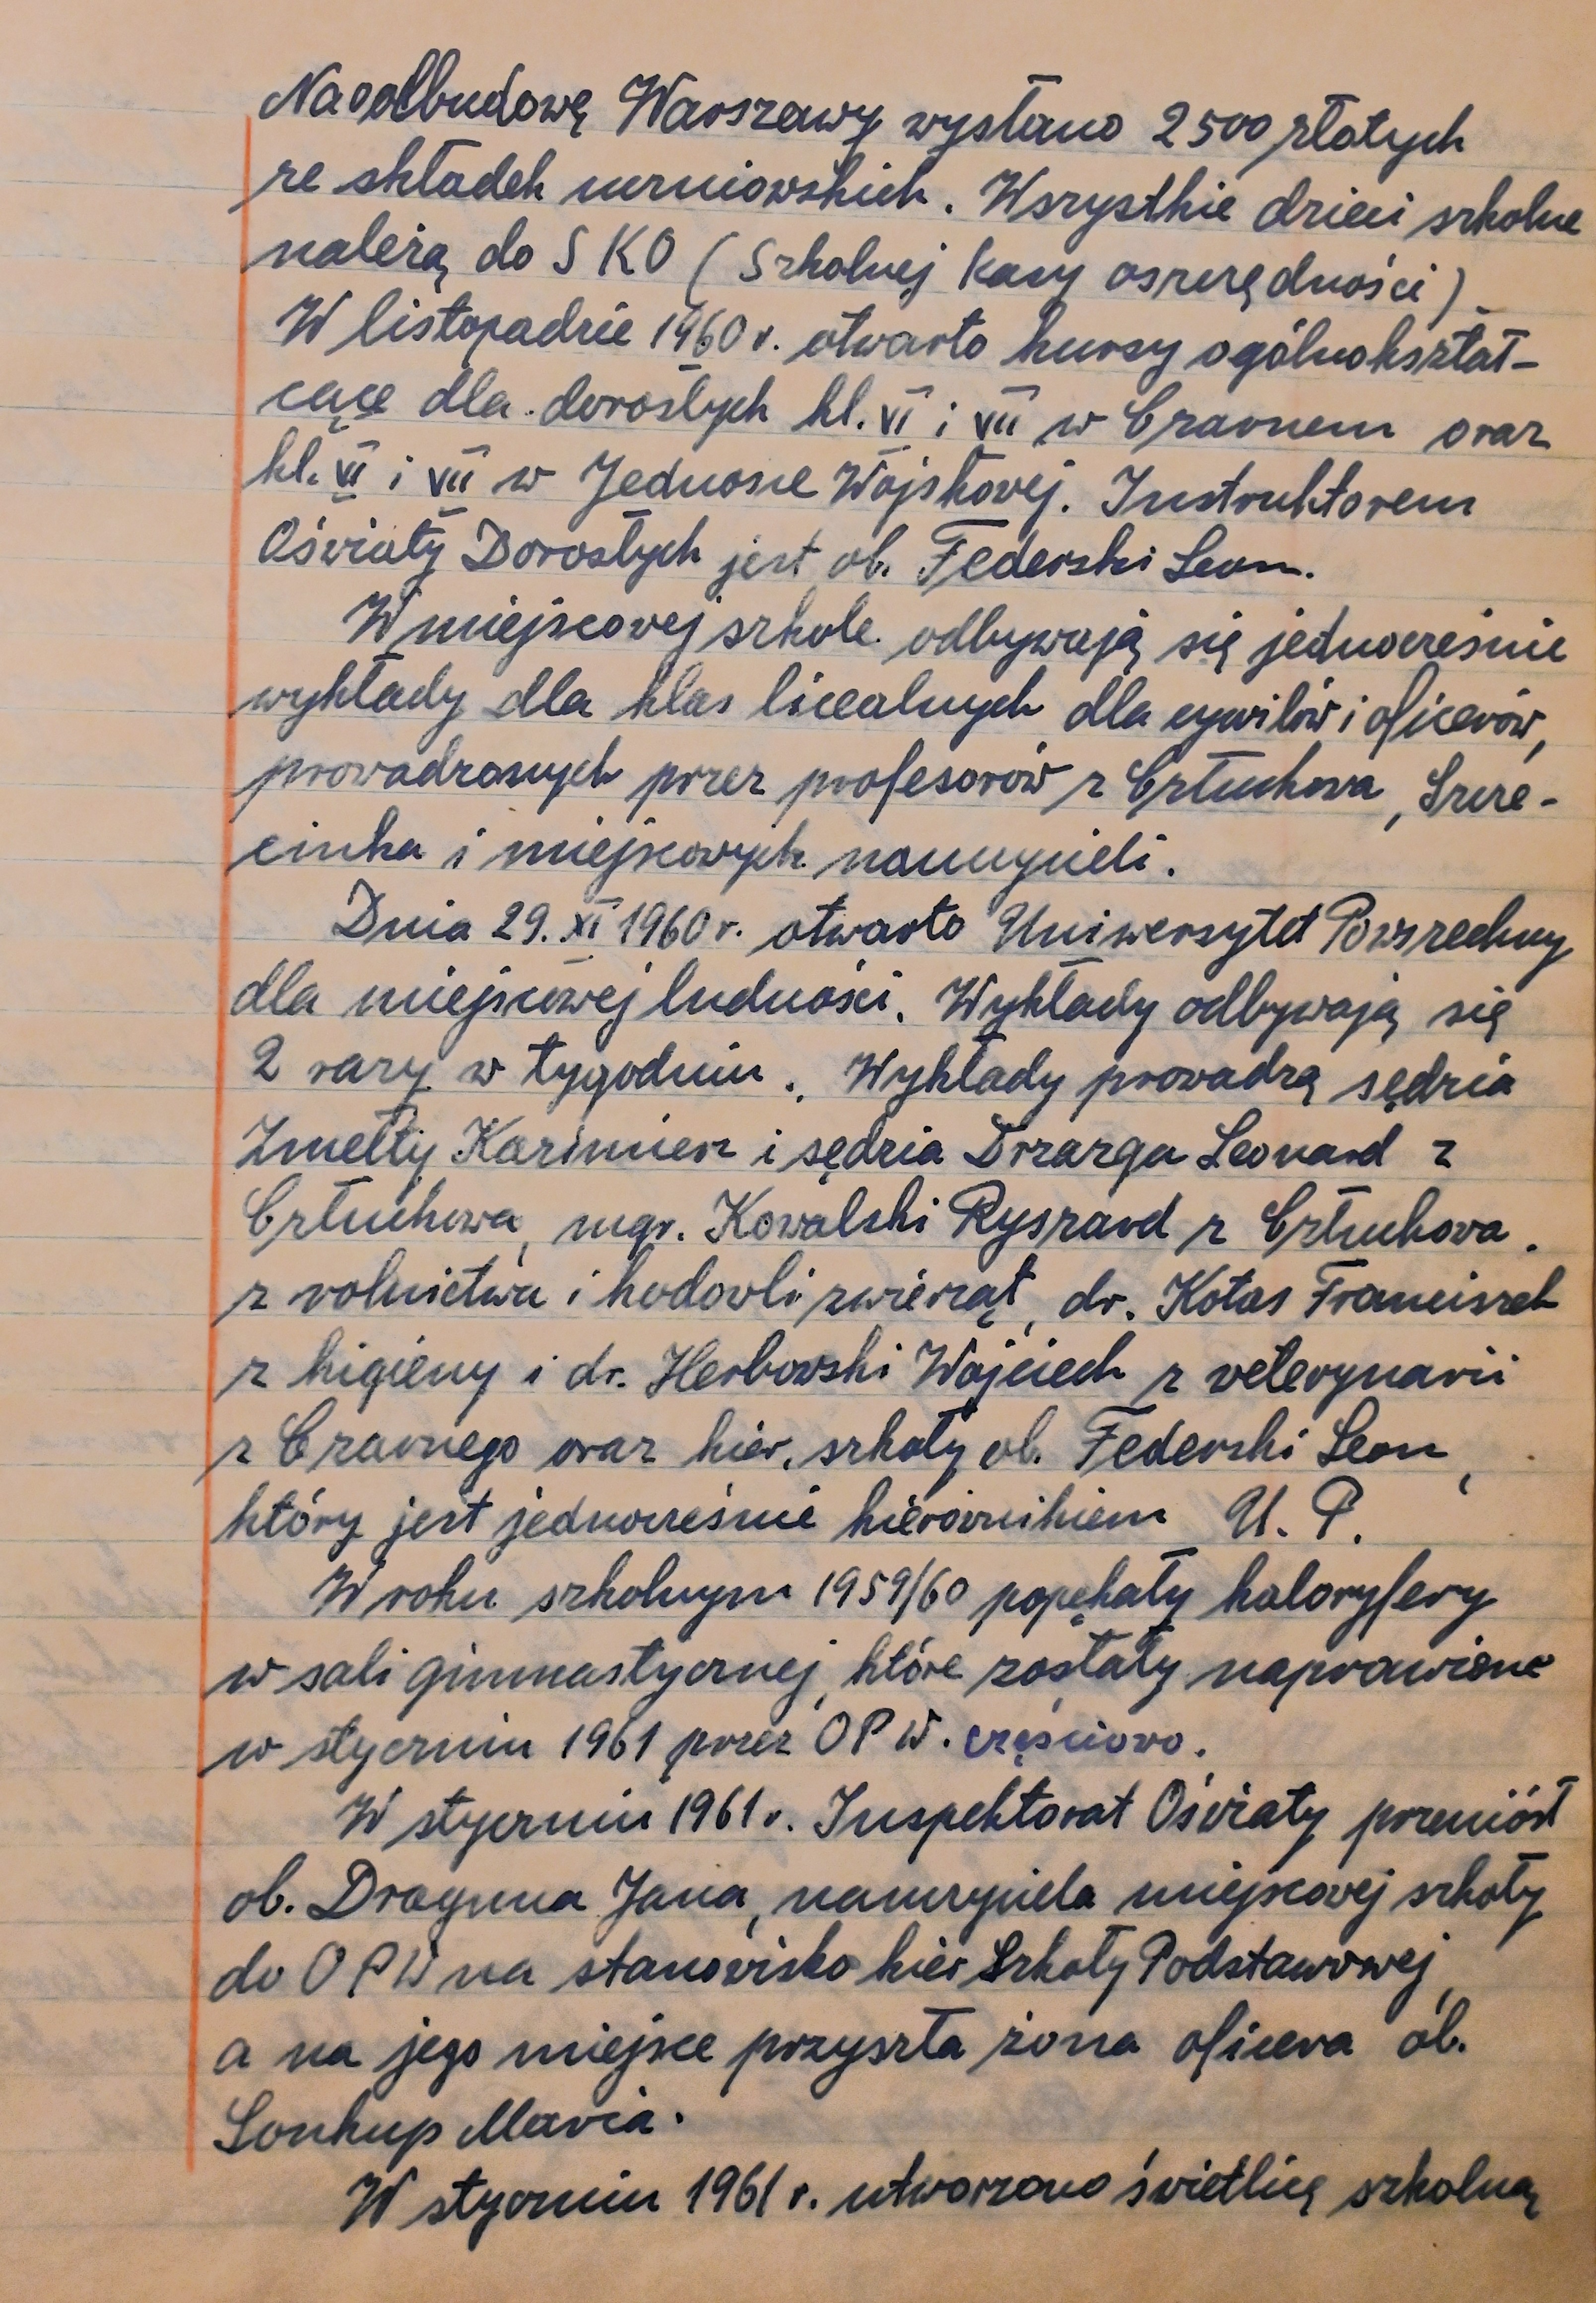 Na odbudowę Warszawy wysłano 2500 złotych
ze składek uczniowskich. Wszystkie dzieci szkolne
należą do SKO (Szkolnej kasy oszczędności).
W listopadzie 1960 r. otwarto kursy ogólnokształ-
cące dla dorosłych kl. VI i VII w Czarnem oraz
kl. VI i VII w Jednostce Wojskowej. Instruktorem
Oświaty Dorosłych jest ob. Federski Leon.
W miejscowej szkole odbywają się jednocześnie
wykłady dla klas licealnych dla cywilów i oficerów,
prowadzonych przez profesorów z Człuchowa, Szcze-
cinka i miejscowych nauczycieli.
Dnia 29. XI 1960 r. otwarto Uniwersytet Powszechny
dla miejscowej ludności. Wykłady odbywają się
2 razy w tygodniu. Wykłady prowadzą sędzia
Zmełty Kazimierz i sędzia Drzazga Leonard z
Człuchowa, mgr. Kowalski Ryszard z Człuchowa.
z rolnictwa i hodowli zwierząt, dr. Kotas Franciszek
z higieny i dr. Herbowski Wojciech z weterynarii
z Czarnego oraz kier. szkoły ob. Federski Leon,
który jest jednocześnie kierownikiem U. P.
W roku szkolnym 1959/60 popękały kaloryfery
w sali gimnastycznej, które zostały naprawione
w styczniu 1961 przez OPW. częściowo.
W styczniu 1961 r. Inspektorat Oświaty przeniósł
ob. Draguna Jana, nauczyciela miejscowej szkoły
do OPW na stanowisko kier Szkoły Podstawowej,
a na jego miejsce przyszła żona oficera ob.
Soukup Maria.
W styczniu 1961 r. utworzono świetlicę szkolną